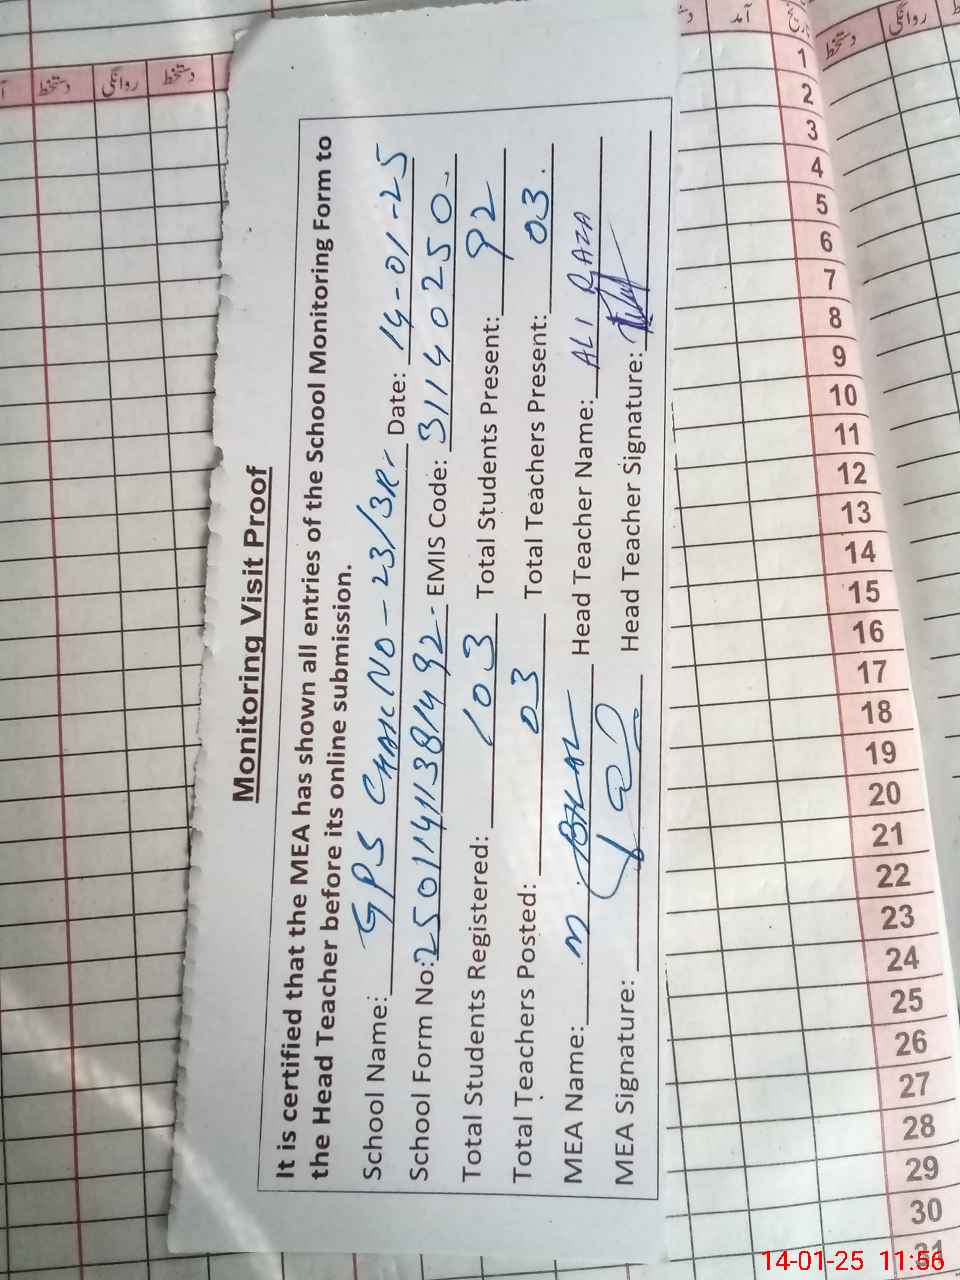 Monitoring Visit Proof
It is certified that the MEA has shown all entries of the School Monitoring Form to
the Head Teacher before its online submission.
School Name: GPS CHAK NO-23/3R. Date: 14-01-25
School Form No: 25011411381492- EMIS Code: 31140250.
Total Students Registered: 103 Total Students Present: 92
Total Teachers Posted: 03 Total Teachers Present: 03.
MEA Name: M BILAL Head Teacher Name: ALI RAZA
MEA Signature: Head Teacher Signature:
دستخط روانگی دستخط آ
دستخط روانگی
تاریخ آمد
1
2
3
4
5
6
7
8
9
10
11
12
13
14
15
16
17
18
19
20
21
22
23
24
25
26
27
28
29
30
31
14-01-25 11:56